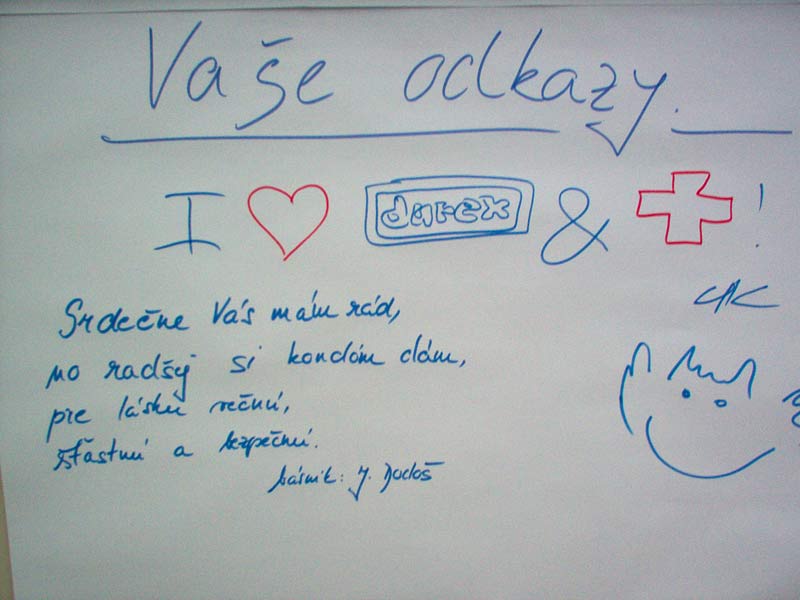 Vaše odkazy.
I durex & !
Srdečne Vás mám rád,
no radšy si kondóm dám,
pre lásku večnú,
šťastnú a bezpečnú.
básnik: J. Dodoš